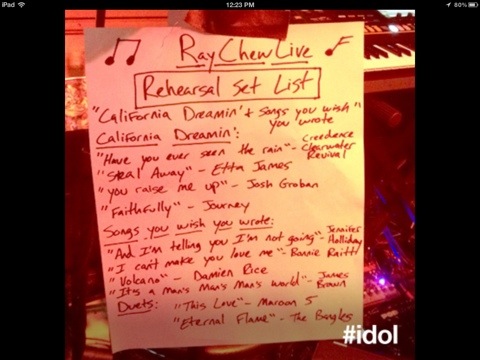 iPad 12:23 PM 80%
Ray Chew Live
Rehearsal Set List
"California Dreamin' & Songs you wish you wrote"
California Dreamin':
"Have you ever seen the rain" - Creedence Clearwater Revival
"Steal Away" - Etta James
"you raise me up" - Josh Groban
"Faithfully" - Journey
Songs you wish you wrote:
"And I'm telling you I'm not going" - Jennifer Holliday
"I can't make you love me" - Bonnie Raitt
"Volcano" - Damien Rice
"It's a man's man's man's world" - James Brown
Duets: "This Love" - Maroon 5
"Eternal Flame" - The Bangles
#idol